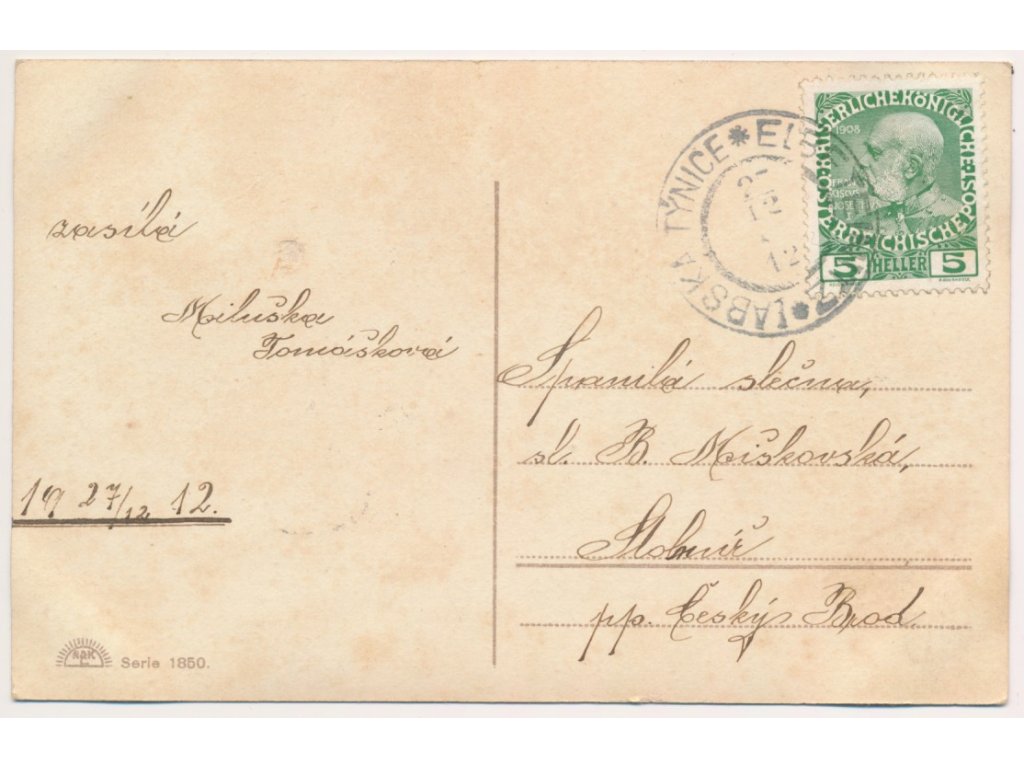 zasílá
Miluška
Tomášková
19 27/12 12.
NBK
Serie 1850.
LABSKÁ TÝNICE * ELB
27
12
12
KAISERLICHE KÖNIGLICHE
ÖSTERREICHISCHE POST
1908
5 HELLER 5
Spanilá slečna,
sl. B. Miškovská,
pp. Český Brod.